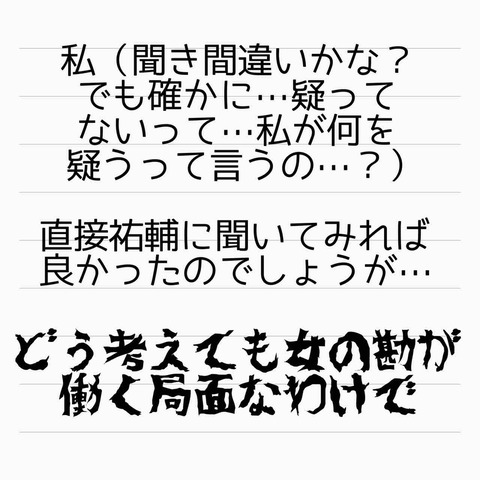 私（聞き間違いかな？
でも確かに…疑って
ないって…私が何を
疑うって言うの…？）
直接祐輔に聞いてみれば
良かったのでしょうが…
どう考えても女の勘が
働く局面なわけで